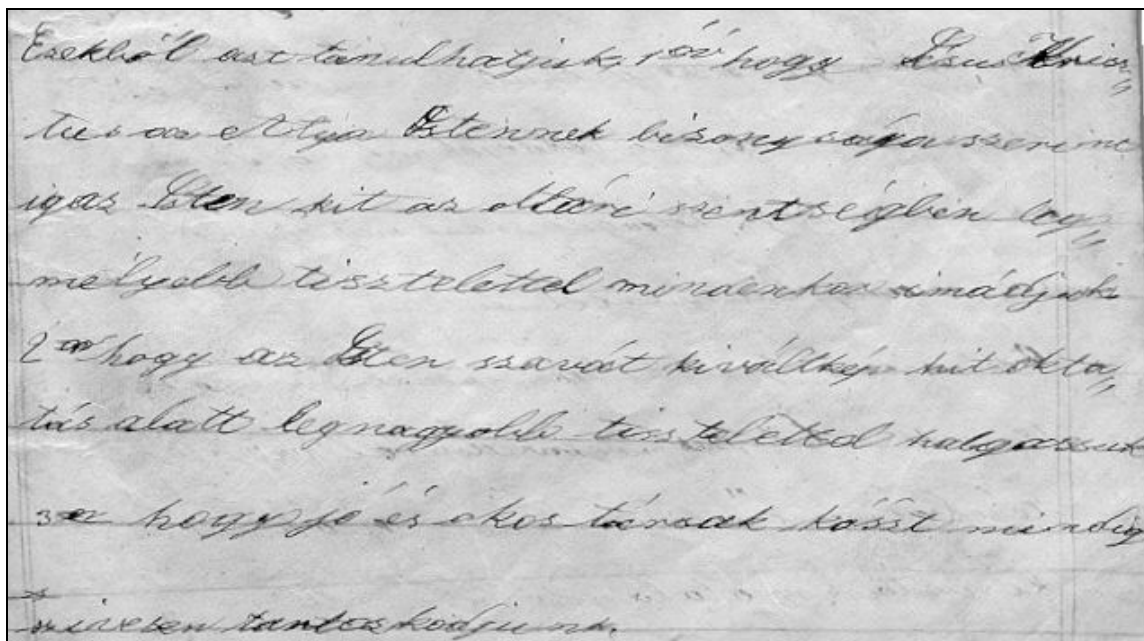 Ezekből azt tanulhatjuk, 1ör hogy Jésus Kris„
tus az Atya Istennek bizonysága szerint
igaz Isten kit az oltári szentségben leg„
mélyebb tisztelettel mindenkor imádjuk
2or hogy az Isten szavát kiváltkép hit okta„
tás alatt legnagyobb tisztelettel halgassuk
3or hogy jó és okos társak közöt mindig
szivesen tartozkodjunk.